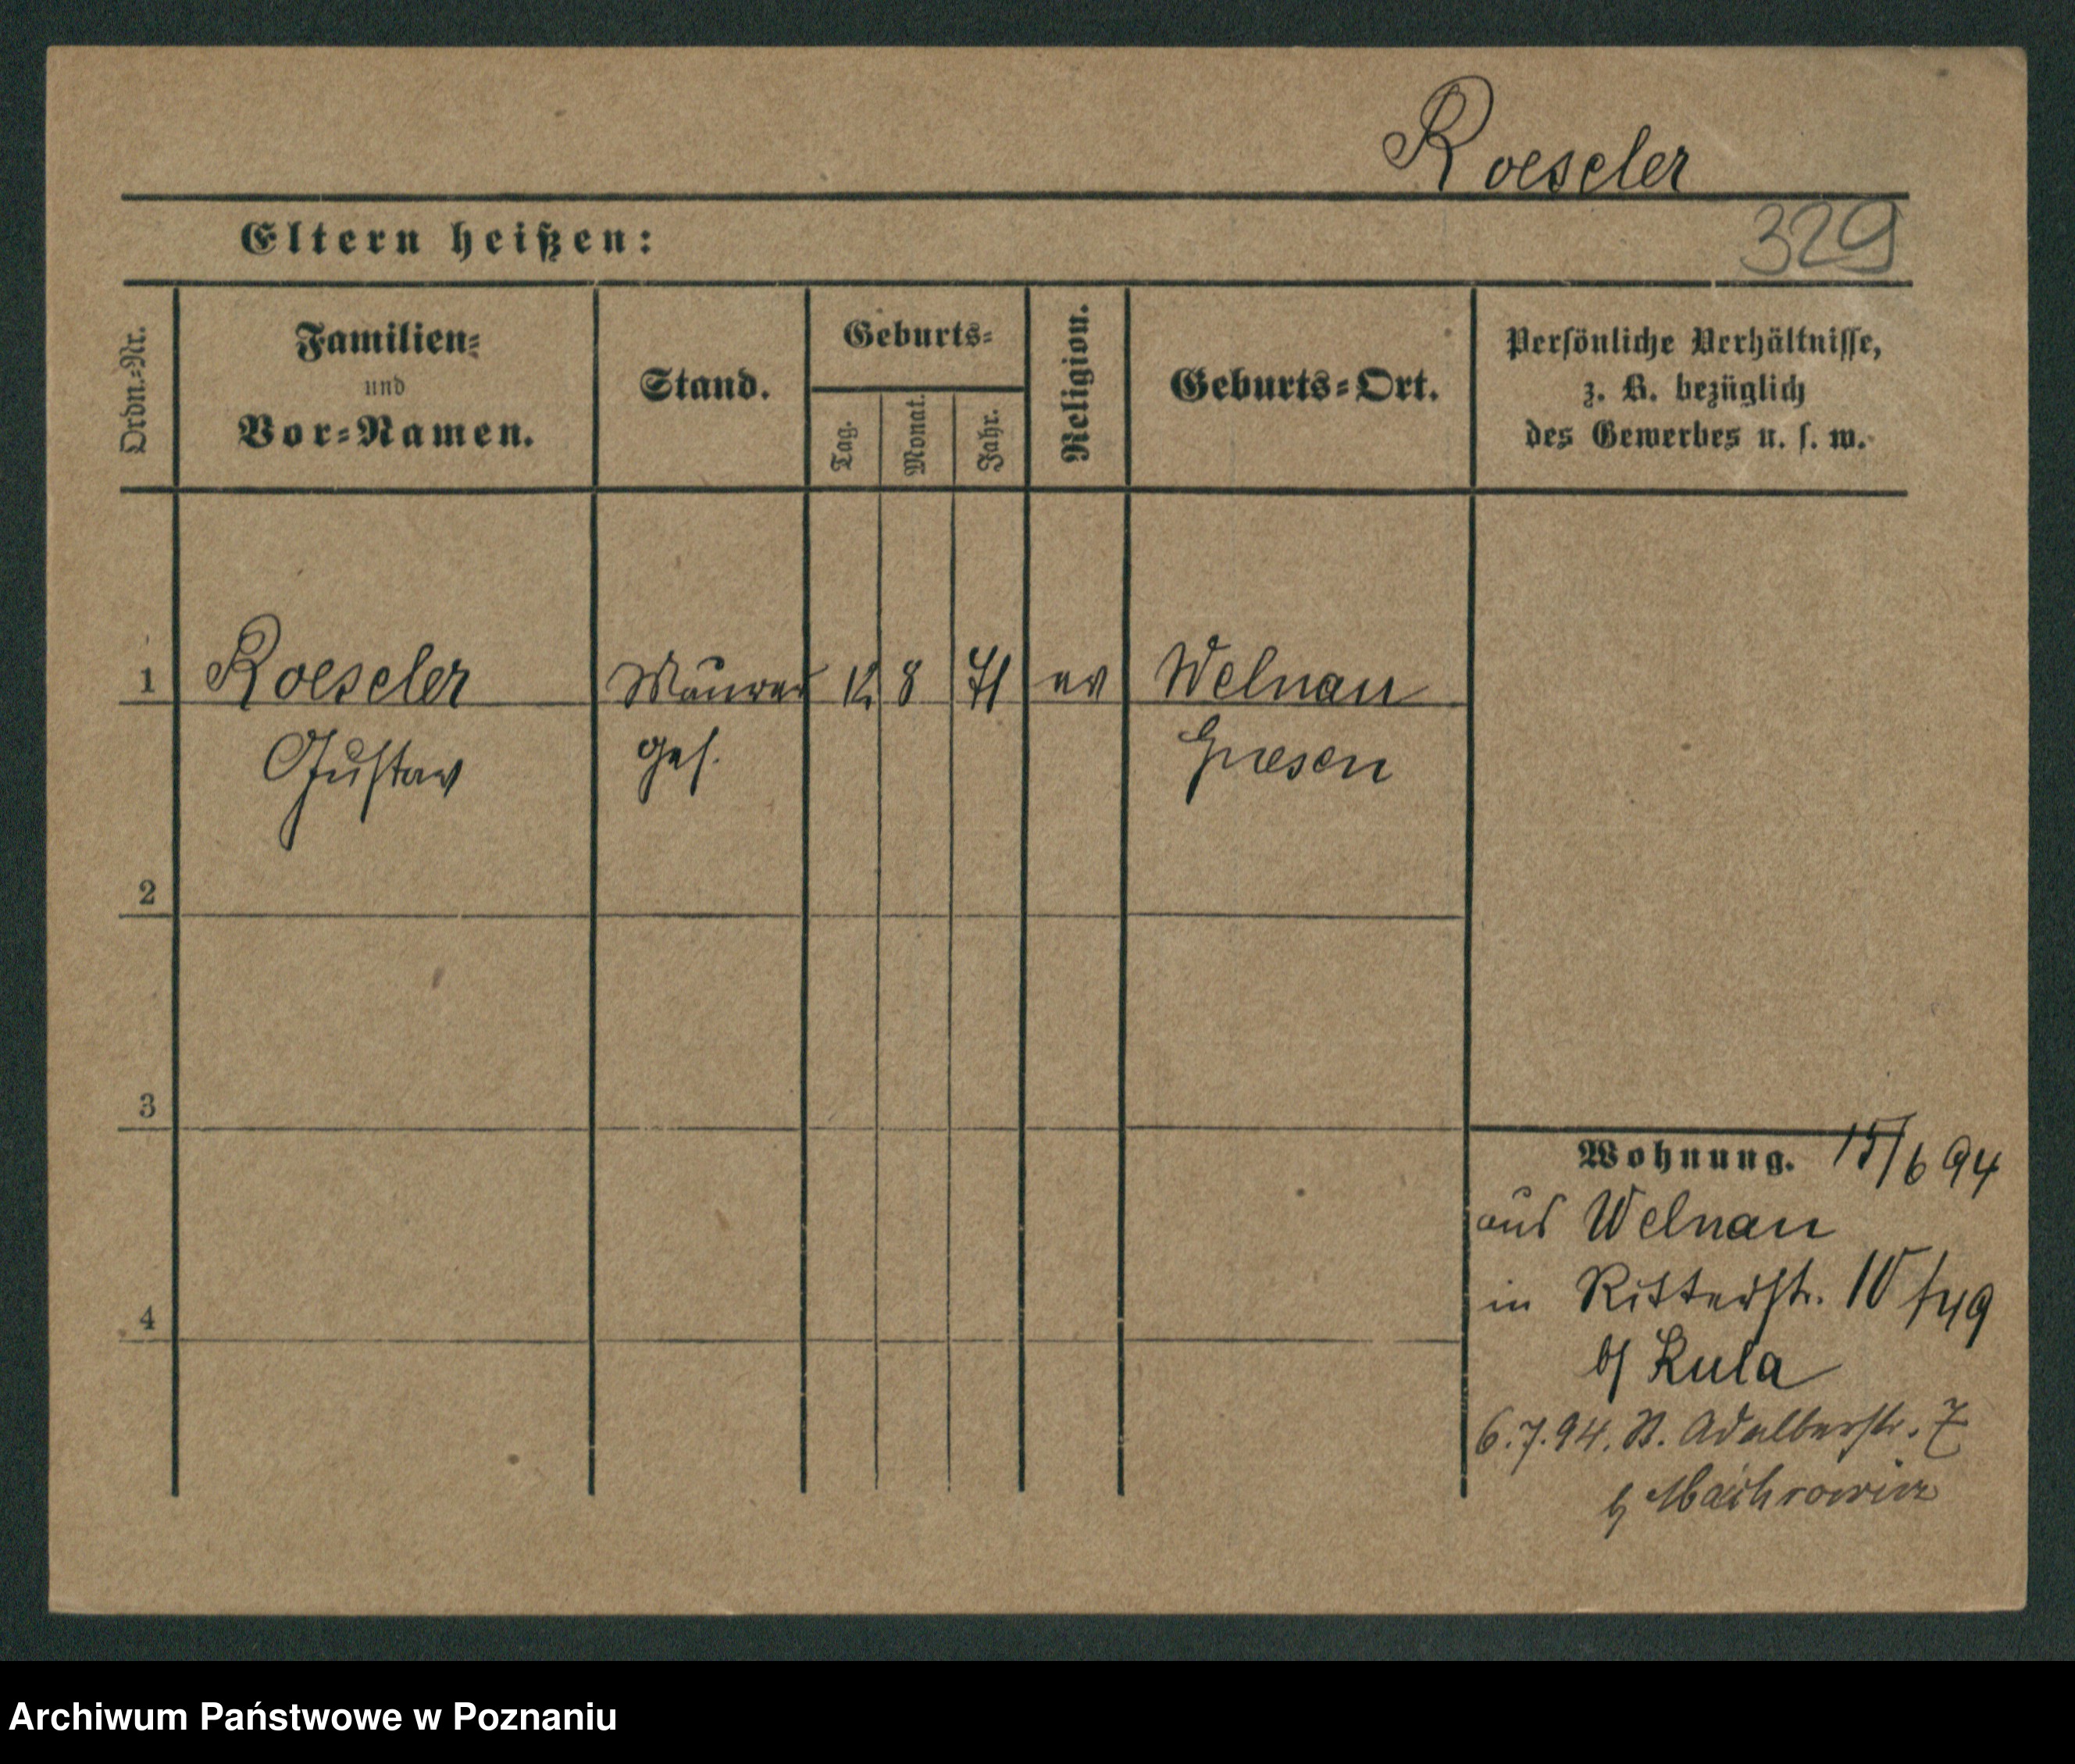 Roeseler
329
Eltern heißen:
Ordn.-Nr.
Familien-
und
Vor-Namen.
Stand.
Geburts-
Tag.
Monat.
Jahr.
Religion.
Geburts-Ort.
Persönliche Verhältnisse,
z. B. bezüglich
des Gewerbes u. s. w.
1 Roeseler Maurer 12 8 71 ev Welnau
Gustav ges. Gnesen
2
3
4
Wohnung. 15/6 94
aus Welnau
in Ritterstr. 10
b/ Kula
6.7.94. St. Adalbertstr. 7
b/
Archiwum Państwowe w Poznaniu